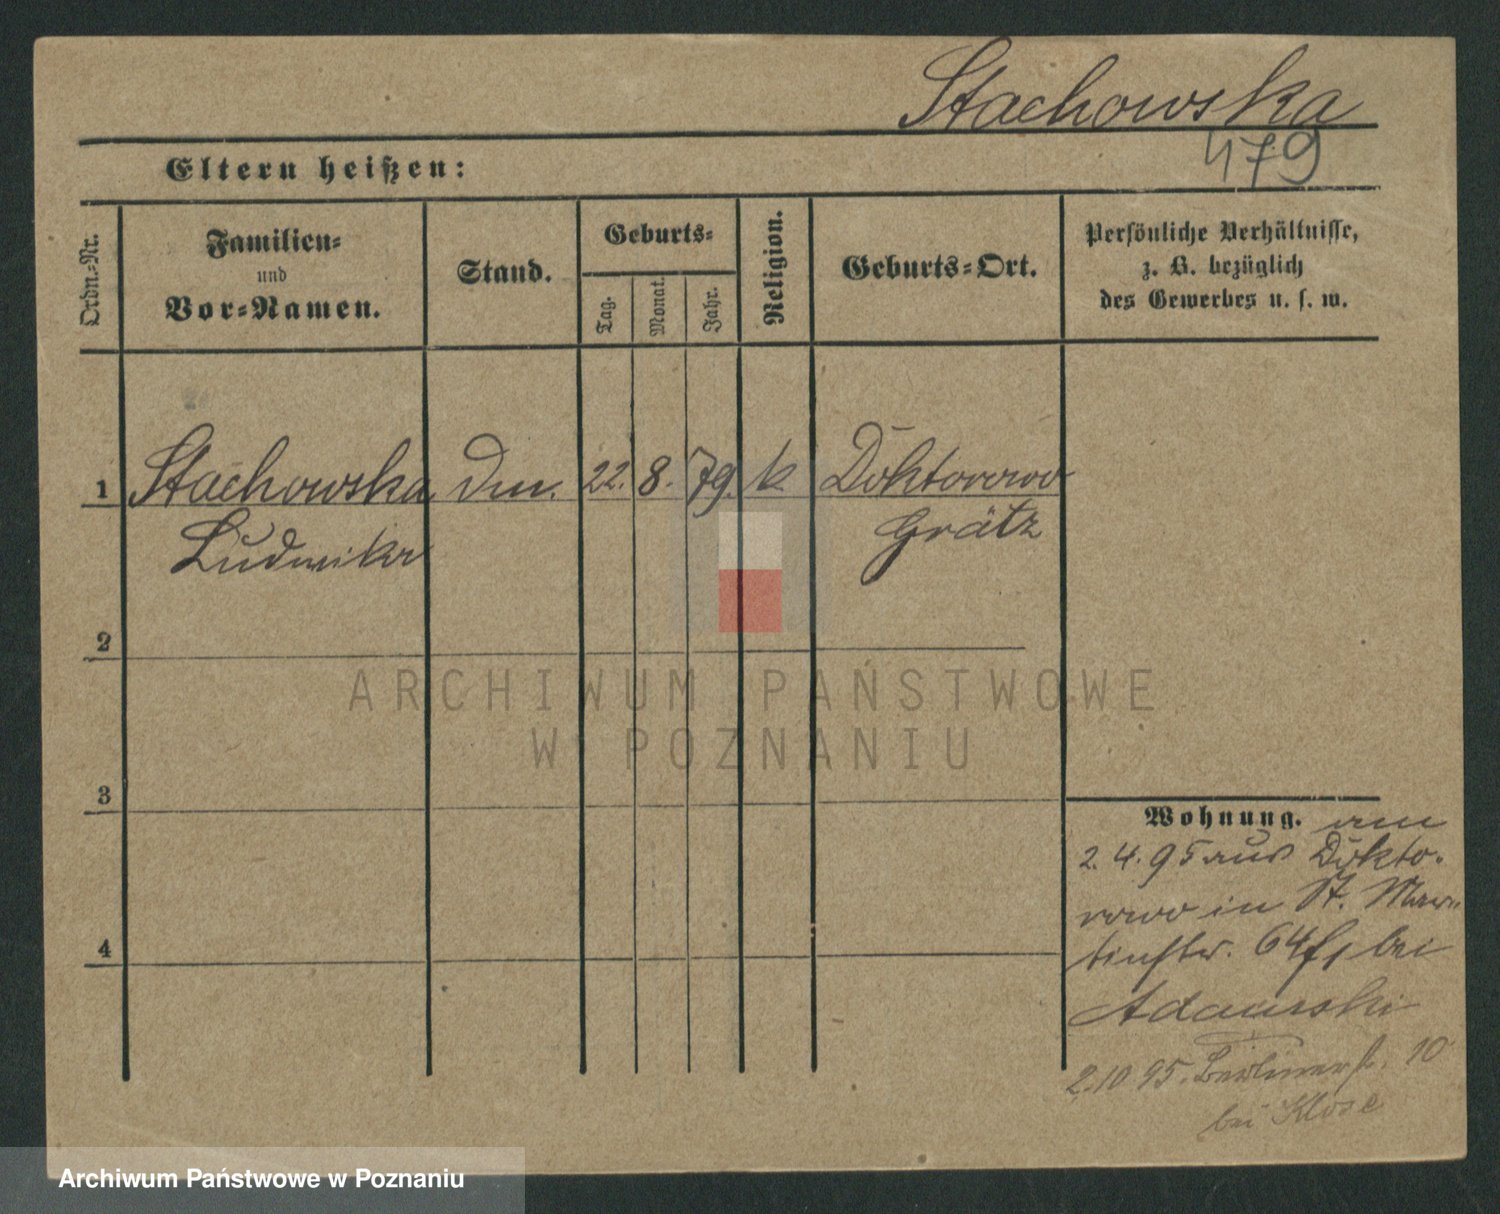 Stachowska
479
Eltern heißen:
Ordn.-Nr.
Familien-
und
Vor-Namen.
Stand.
Geburts-
Tag.
Monat.
Jahr.
Religion.
Geburts-Ort.
Persönliche Verhältnisse,
z. B. bezüglich
des Gewerbes u. s. w.
1 Stachowska Dm. 22. 8. 79. k. Doktorowo
Ludwika Grätz
2
ARCHIWUM PAŃSTWOWE
W POZNANIU
3
Wohnung. am
2. 4. 95 aus Dokto-
rowo in St. Mar-
tinstr. 64 bei
Adamski
2.10 95. Berlinerstr. 10
bei Klose
4
Archiwum Państwowe w Poznaniu